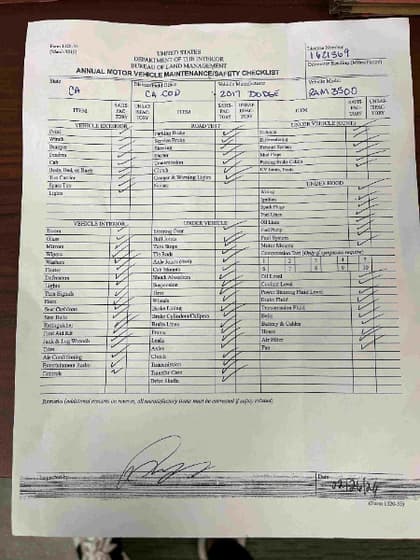 Form 1520-35
UNITED STATES
DEPARTMENT OF THE INTERIOR
BUREAU OF LAND MANAGEMENT
ANNUAL MOTOR VEHICLE MAINTENANCE/SAFETY CHECKLIST
License Number
1621369
State
CA
CA COD
Vehicle Manufacturer
2017 DODGE
Vehicle Model
RAM 3500
ITEM SATIS-FAC-TORY UNSAT-ISFAC-TORY ITEM SATIS-FAC-TORY UNSAT-ISFAC-TORY ITEM SATIS-FAC-TORY UNSAT-ISFAC-TORY
VEHICLE EXTERIOR
Paint
Bumper
Fenders
Body, Bed, or Rack
Tire Carrier
Spare Tire
Lights
ROAD TEST
Parking Brake
Service Brake
Steering
Transmission
Clutch
Gauges & Warning Lights
UNDER VEHICLE (CONT.)
Exhaust System
Mud Flaps
Parking Brake Cables
UNDER HOOD
Wiring
Ignition
Spark Plugs
Fuel Lines
Oil Lines
Fuel Pump
Fuel System
Motor Mounts
Compression Test (Only if symptoms require)
1 2 3 4 5
6 7 8 9 10
Oil Level
Coolant Level
Power Steering Fluid Level
Brake Fluid
Transmission Fluid
Belts
Battery & Cables
Hoses
Air Filter
Fan
VEHICLE INTERIOR
Doors
Glass
Mirrors
Wipers
Washers
Heater
Defrosters
Lights
Turn Signals
Horn
Seat Cushions
Seat Belts
Extinguisher
First Aid Kit
Jack & Lug Wrench
Tires
Air Conditioning
Controls
UNDER VEHICLE
Steering Gear
Ball Joints
Tie Rods
Shock Absorbers
Suspension
Tires
Wheels
Brake Lining
Brake Cylinders/Calipers
Brake Lines
Frame
Leaks
Axles
Clutch
Transmission
Transfer Case
Drive Shafts
Remarks (additional remarks on reverse, all unsatisfactory items must be corrected if safety related)
Inspected by
Date
02/26/24
(Form 1520-35)